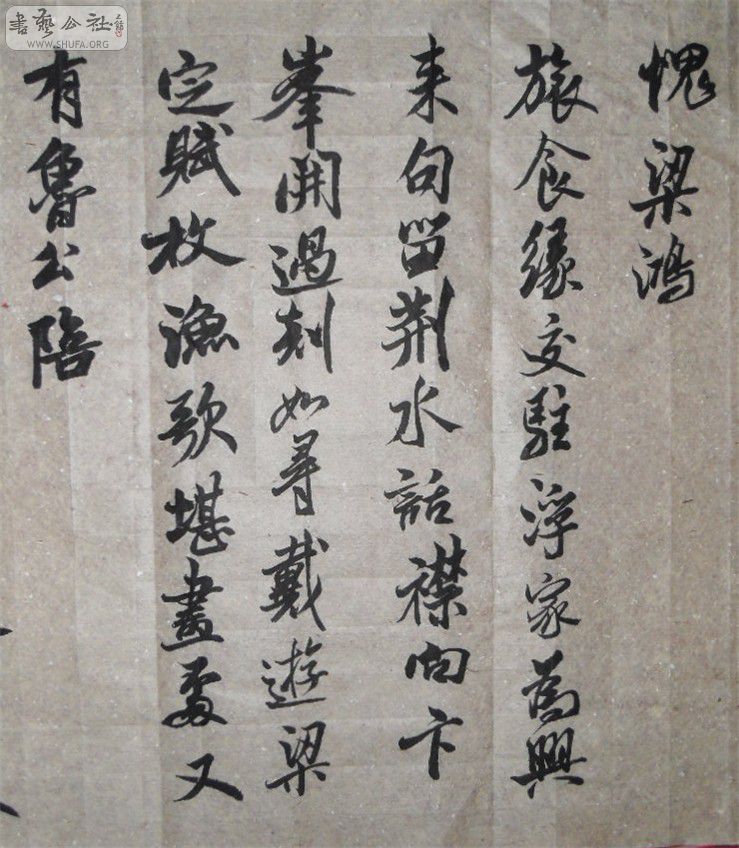 書藝公社
WWW.SHUFA.ORG
愧梁鴻
旅食緣交駐浮家為興
来句留荊水話襟向卞
峯開過剡如尋戴遊梁
定賦枚漁歌堪畫處又
有魯公陪